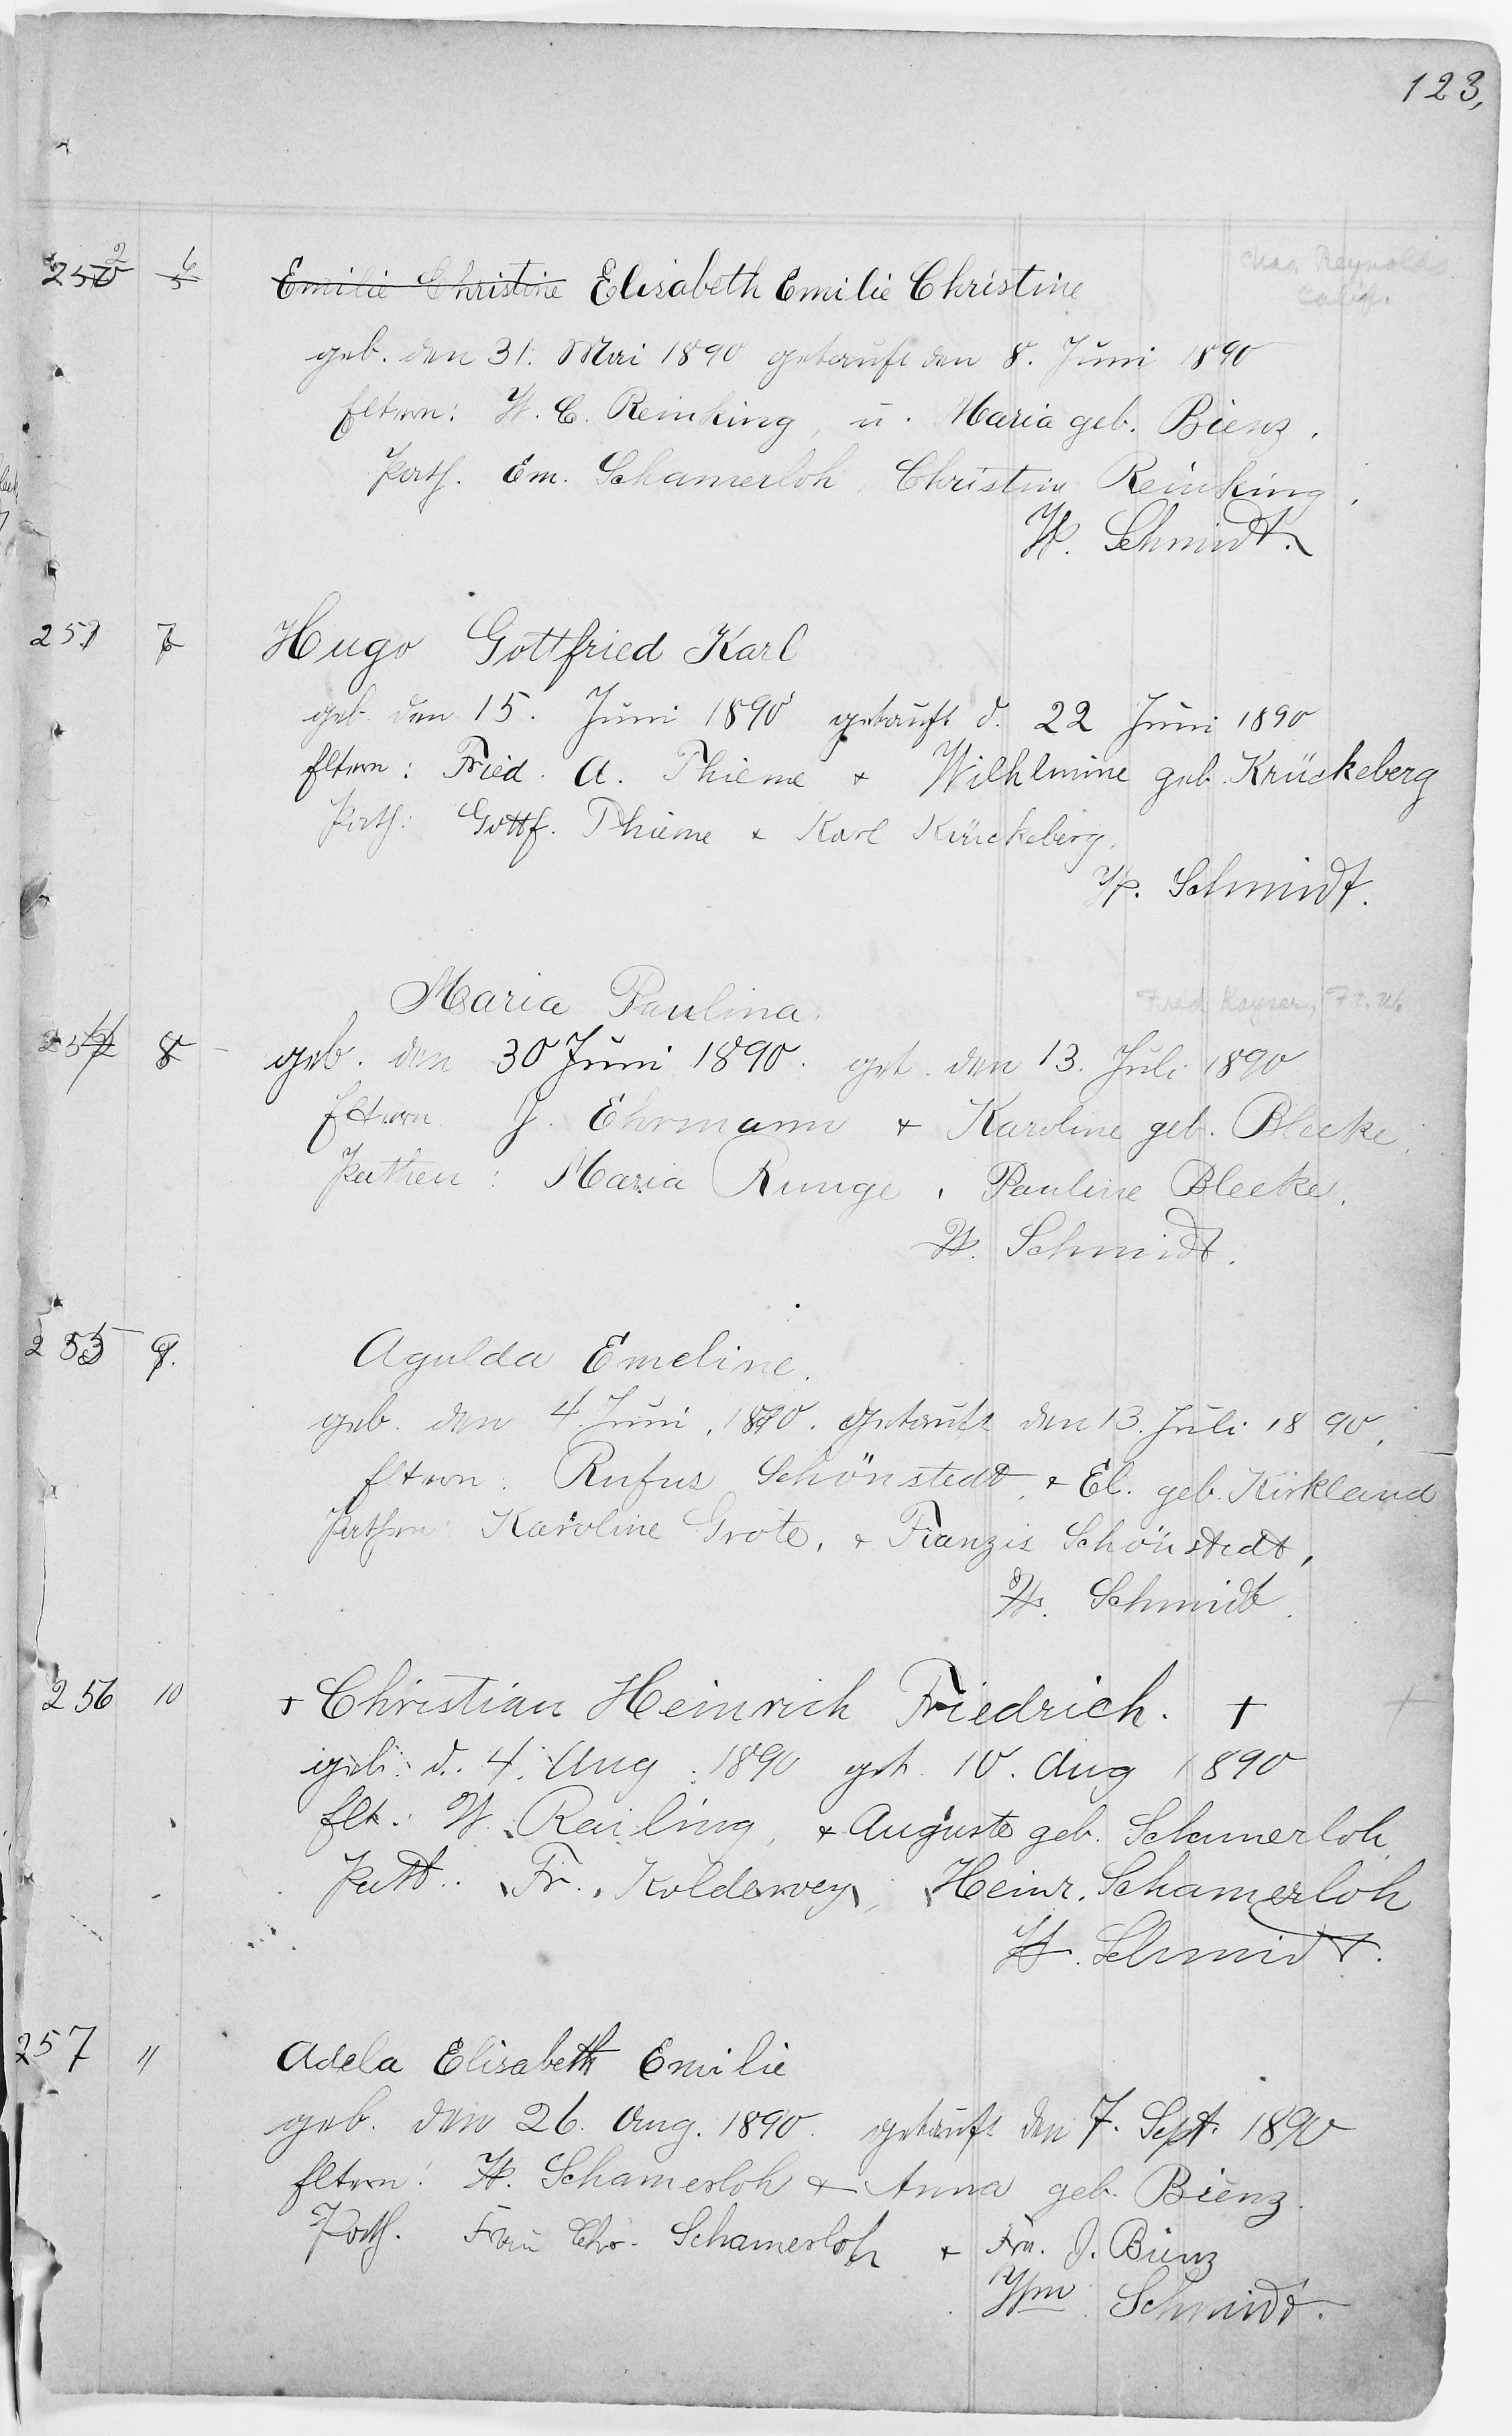 123,
252 6 Emilie Christine Elisabeth Emilie Christine
Chas. Reynolds
Calif.
geb. den 31. Mai 1890 getauft den 8. Juni 1890
Eltern: W. C. Reinking, u. Maria geb. Bienz.
Path. Em. Schamerloh, Christine Reinking.
W. Schmidt.
253 7 Hugo Gottfried Karl
geb. den 15. Juni 1890 getauft d. 22 Juni 1890
Eltern: Fried. A. Thieme + Wilhlmine geb. Krückeberg
Path: Gottf. Thieme + Karl Krückeberg.
W. Schmidt.
Maria Paulina.
Fred Kayser, Ft. W.
254 8 geb. den 30 Juni 1890. get. den 13. Juli 1890
Eltern J. Ehrmann + Karoline geb. Bleeke.
Pathen: Maria Runge, Pauline Bleeke.
W. Schmidt.
255 9. Agulda Emeline.
geb. den 4. Juni, 1890. Getauft den 13. Juli 1890.
Eltern: Rufus Schönstedt, + El. geb. Kirkland
Pathen: Karoline Grote, + Franzis Schönstedt,
W. Schmidt.
256 10 + Christian Heinrich Friedrich. +
geb. d. 4. Aug. 1890 get. 10. Aug 1890
Elt.: W. Railing, + Auguste geb. Schamerloh,
Patt.. Fr. Koldewey, Heinr. Schamerloh
W. Schmidt.
257 11 Adela Elisabeth Emilie
geb. den 26. Aug. 1890. getauft den 7. Sept. 1890
Eltern: W. Schamerloh + Anna geb. Bienz.
Path. Frau Chr. Schamerloh + Fra. J. Bienz
Wm Schmidt.